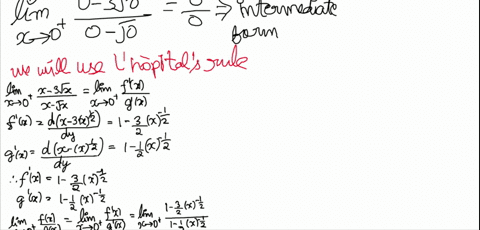 lim x→0⁺ 0-3√0 / 0-√0 = 0/0 ⇒ intermediate
form
we will use L'hôpital's rule
lim x→0⁺ x-3√x / x-√x = lim x→0⁺ f'(x) / g'(x)
f'(x) = d(x-3(x)^½) / dy = 1-3/2(x)^-½
g'(x) = d(x-(x)^½) / dy = 1-½(x)^-½
∴ f'(x) = 1-3/2(x)^-½
g'(x) = 1-½(x)^-½
lim x→0⁺ f(x) / g(x) = lim x→0⁺ f'(x) / g'(x) = lim x→0⁺ 1-3/2(x)^-½ / 1-½(x)^-½